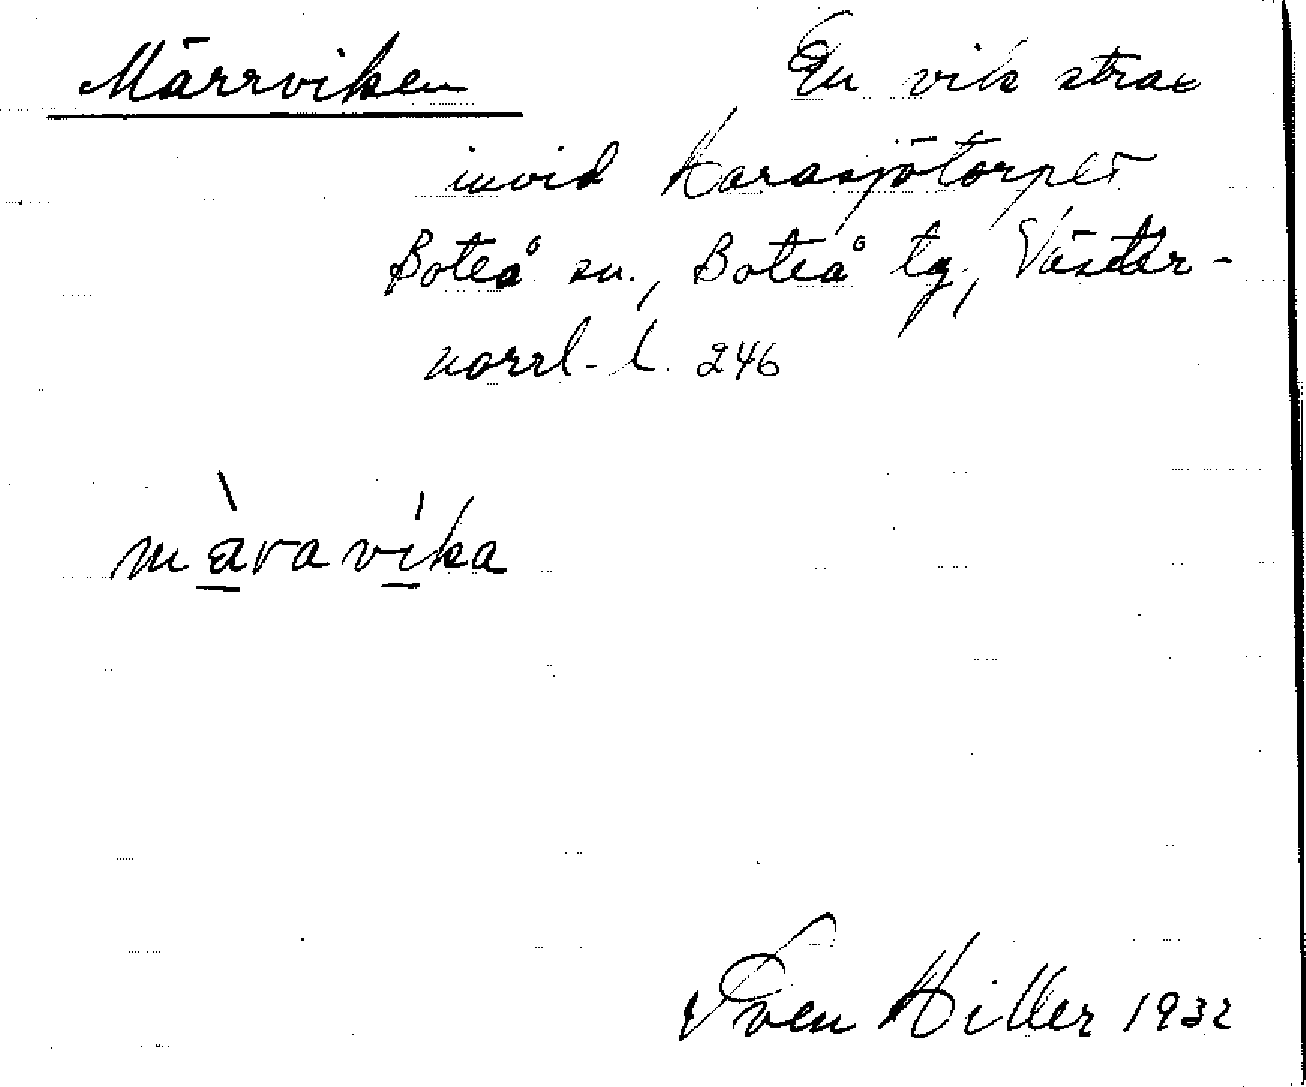 Märrviken En vik strax
invid Harasjötorpet
Boteå sn., Boteå tg., Väster-
norrl. l. 246
màravíka
Sven Hiller 1932